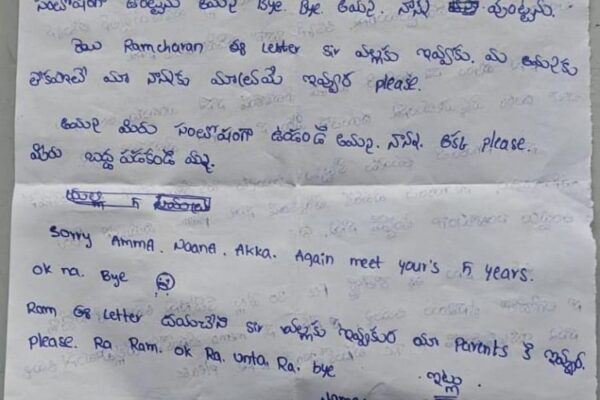 సంతోషంగా ఉంటాను అమ్మ Bye. Bye. అమ్మ. నాన్న వుంటాను.
Ramcharan ఈ Letter Sir వల్లకు ఇవ్వాకు. మా
మా నాన్నకు మాత్రమే ఇవ్వురా please.
అమ్మ మీరు సంతోషంగా ఉండండి అమ్మ. నాన్న. అక్క please.
మీరు బాధ పడకండి
5
Sorry Amma. Naana. Akka. Again meet your's 5 years.
ok na. Bye
Ram ఈ Letter దయచేసి Sir వల్లకు ఇవ్వకుర మా Parents కి ఇవ్వుర.
please. Ra Ram. ok Ra. unta. Ra. bye
ఇట్లు